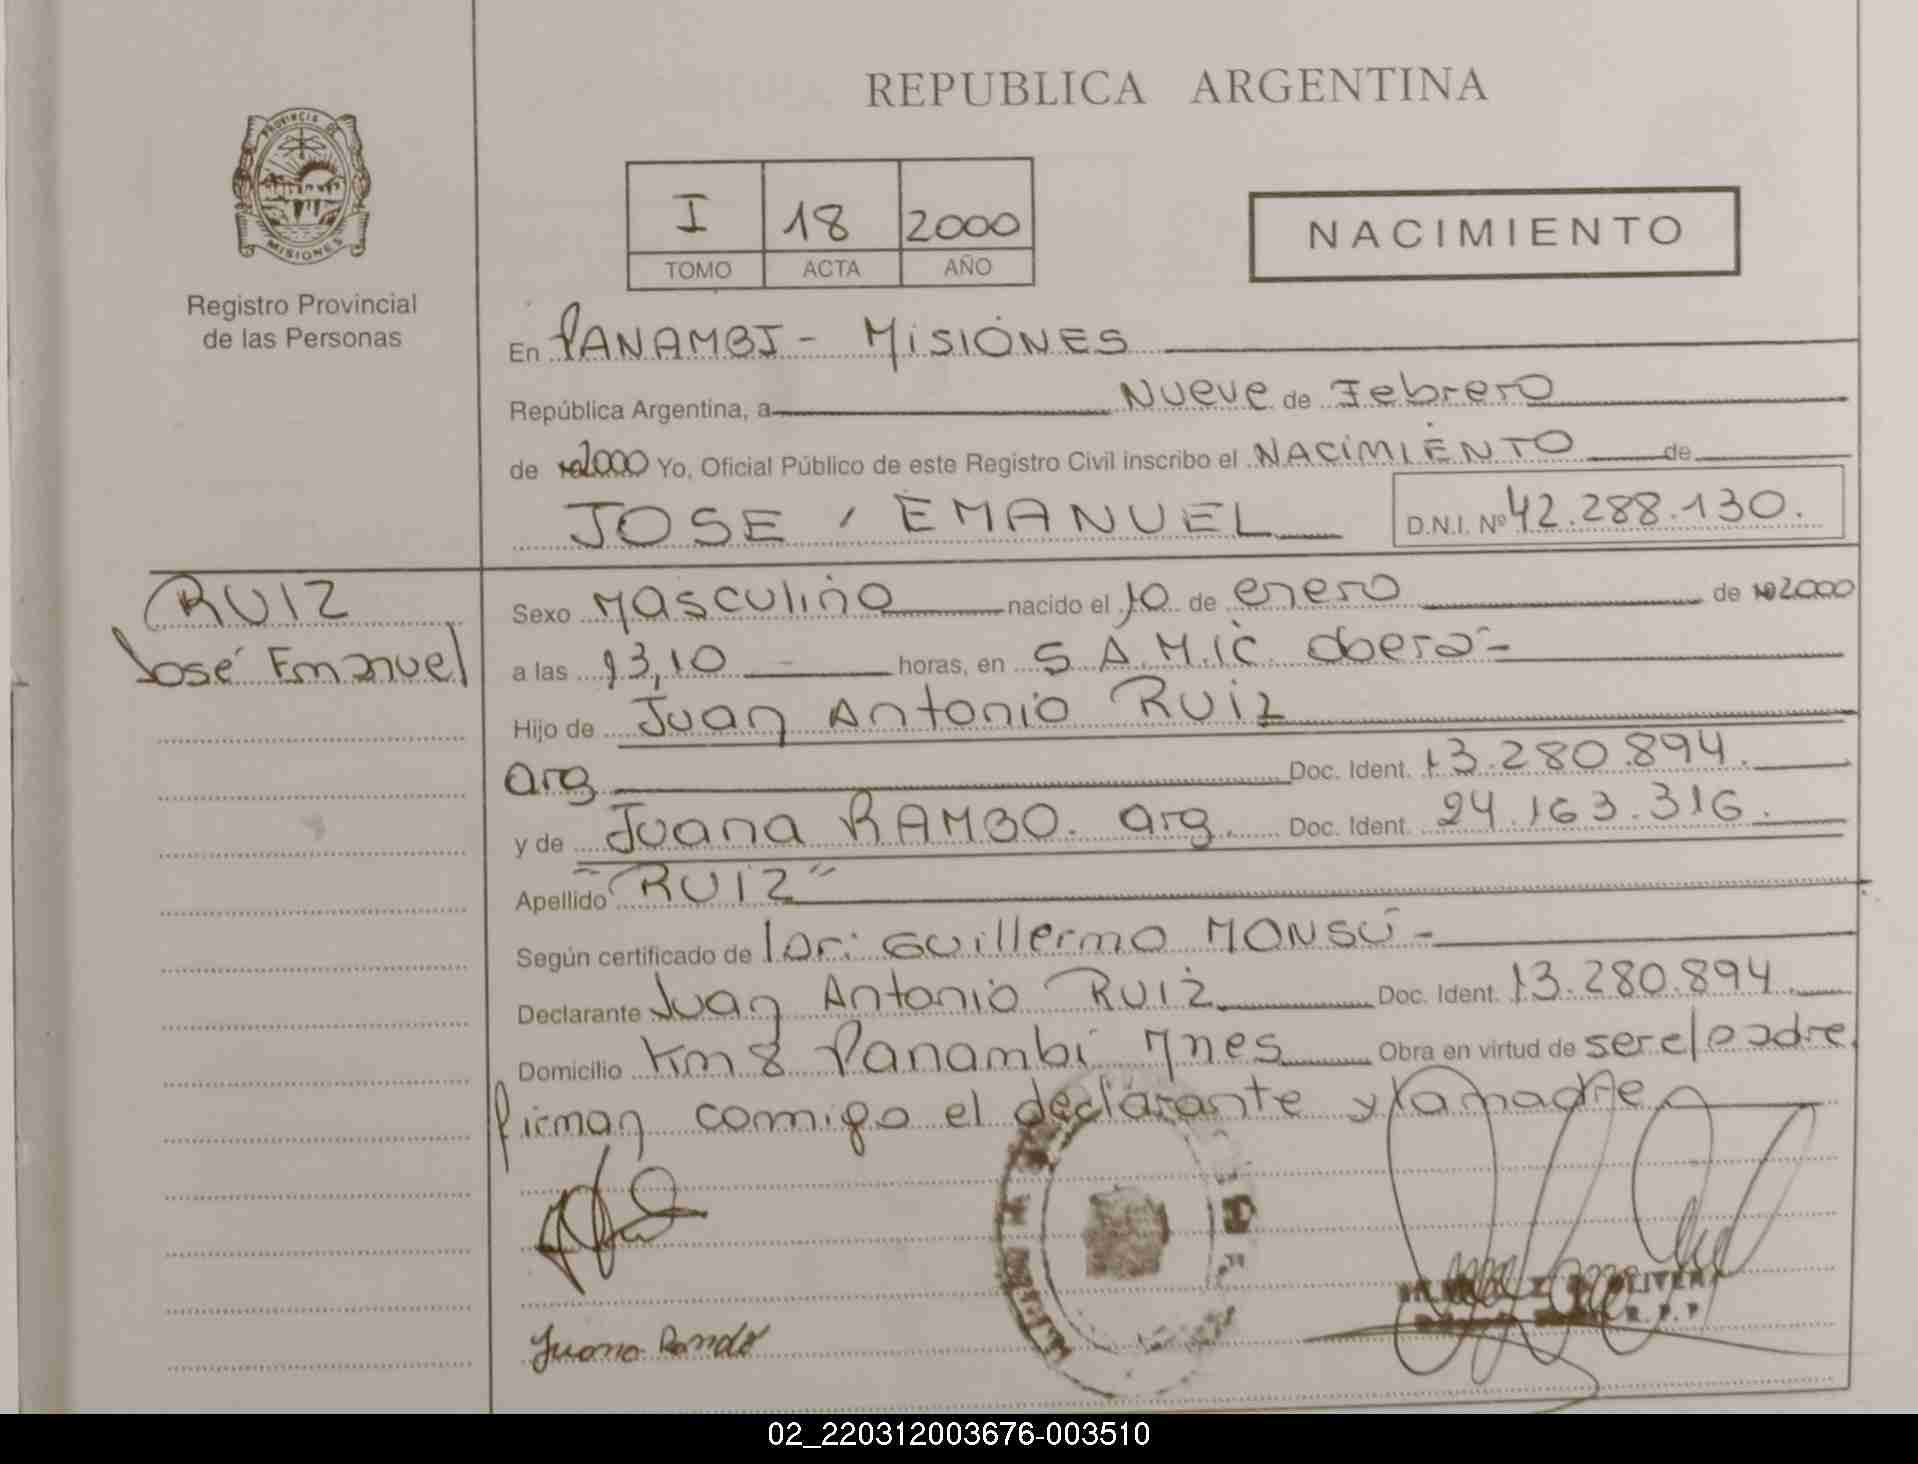 REPUBLICA ARGENTINA
PROVINCIA DE
MISIONES
Registro Provincial
de las Personas
I 18 2000
TOMO ACTA AÑO
NACIMIENTO
En PANAMBI - MISIONES
República Argentina, a Nueve de Febrero
de 2000 Yo, Oficial Público de este Registro Civil inscribo el NACIMIENTO de
JOSE EMANUEL D.N.I. Nº 42.288.130.
RUIZ
José Emanuel
Sexo Masculino nacido el 10 de enero de 2000
a las 13,10 horas, en S.A.M.I.C. Oberá-
Hijo de Juan Antonio RUIZ
arg Doc. Ident. 13.280.894.
y de Juana RAMBO. arg. Doc. Ident. 24.163.316.
Apellido "RUIZ"
Según certificado de Dr: Guillermo MONSÚ -
Declarante Juan Antonio RUIZ Doc. Ident. 13.280.894
Domicilio Km 8 Panambi Mnes Obra en virtud de ser el padre
firman conmigo el declarante y la madre
Juana Rambo
OLIVERA
R.P.P
02_220312003676-003510